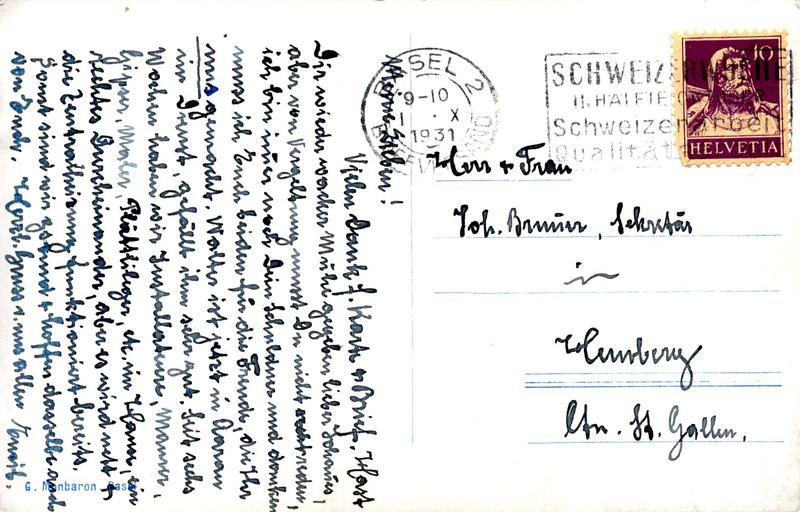 Meine Lieben!
Vielen Dank f. Karte & Brief. Hast
Dir wieder wacker Mühe gegeben lieber Johannes,
aber von Vergeltung musst Du nicht reden,
ich bin immer noch Dein Schuldner und danken
muss ich Euch beiden für die Freude, die Ihr
uns gemacht. Walter ist jetzt in Aarau
im Dienst, gefällt ihm sehr gut. Seit sechs
Wochen haben wir Installateure, Maurer,
Gipser, Maler, Plättlileger, etc. im Hause, ein
rechtes Durcheinander, aber es wird nett &
die Zentralheizung funktioniert bereits.
Sonst sind wir gesund & hoffen dasselbe auch
von Euch. Herzl. Gruss v. uns allen
G. Monbaron Basel
BASEL 2
9-10
X
1931
SCHWEIZERWOCHE
II. HÄLFTE OKTOBER
Schweizerarbeit
Qualitäts
10
HELVETIA
Herr & Frau
Joh. Brunner, Sekretär
in
Hemberg
Ctn. St. Gallen.